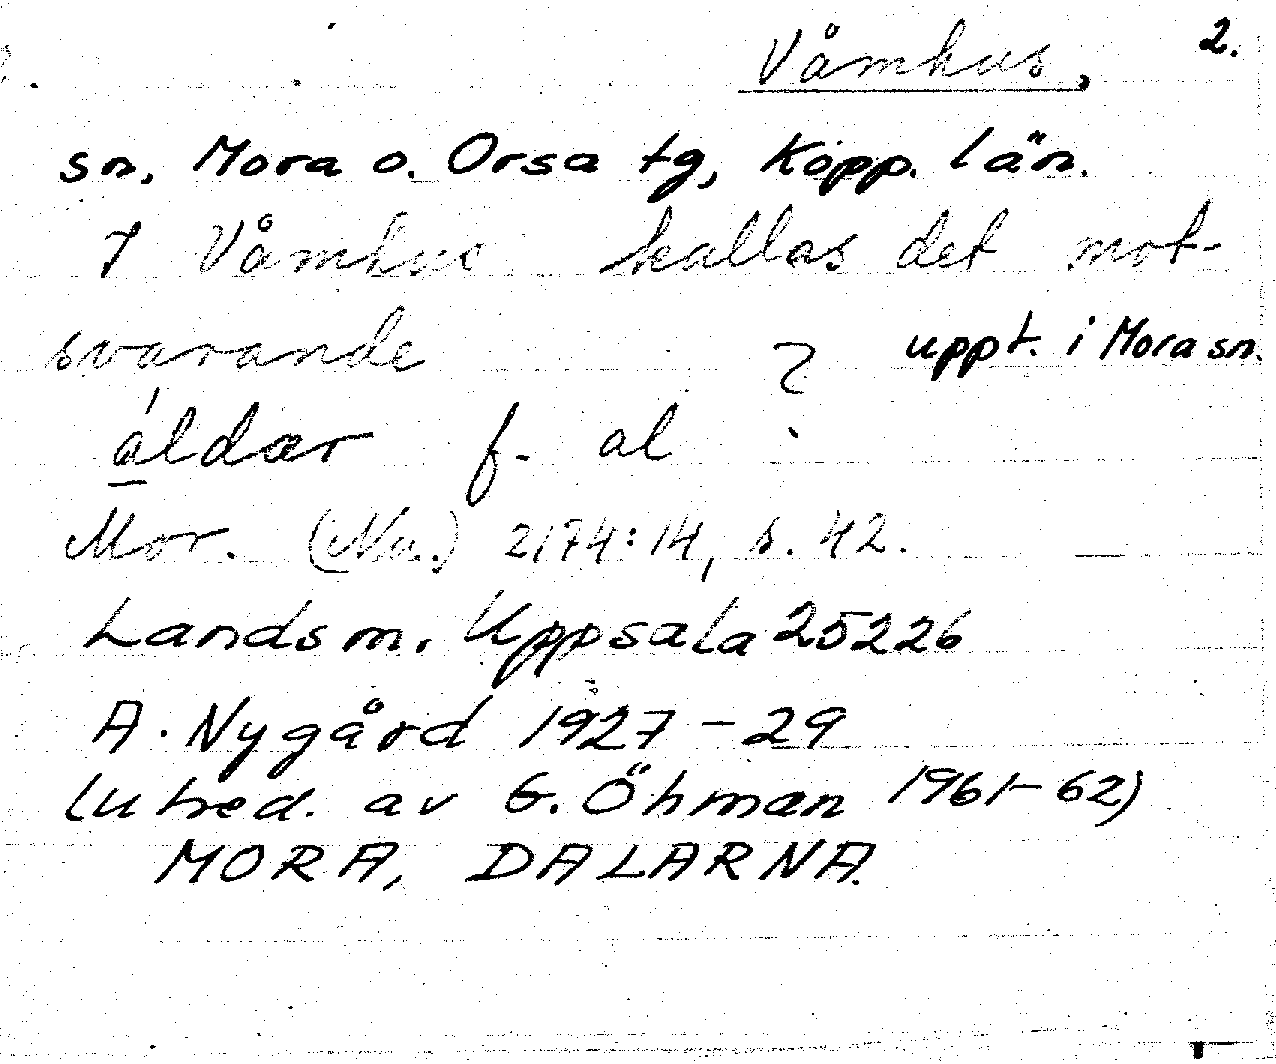 Våmhus, 2.
sn, Mora o. Orsa tg, Kopp. län.
I Våmhus kallas det mot-
svarande ? uppt. i Mora sn.
áldær f. al
Mor. (Nu.) 2174:14, s. 42.
Landsm. Uppsala 25226
A. Nygård 1927-29
(utred. av G. Öhman 1961-62)
MORA, DALARNA.